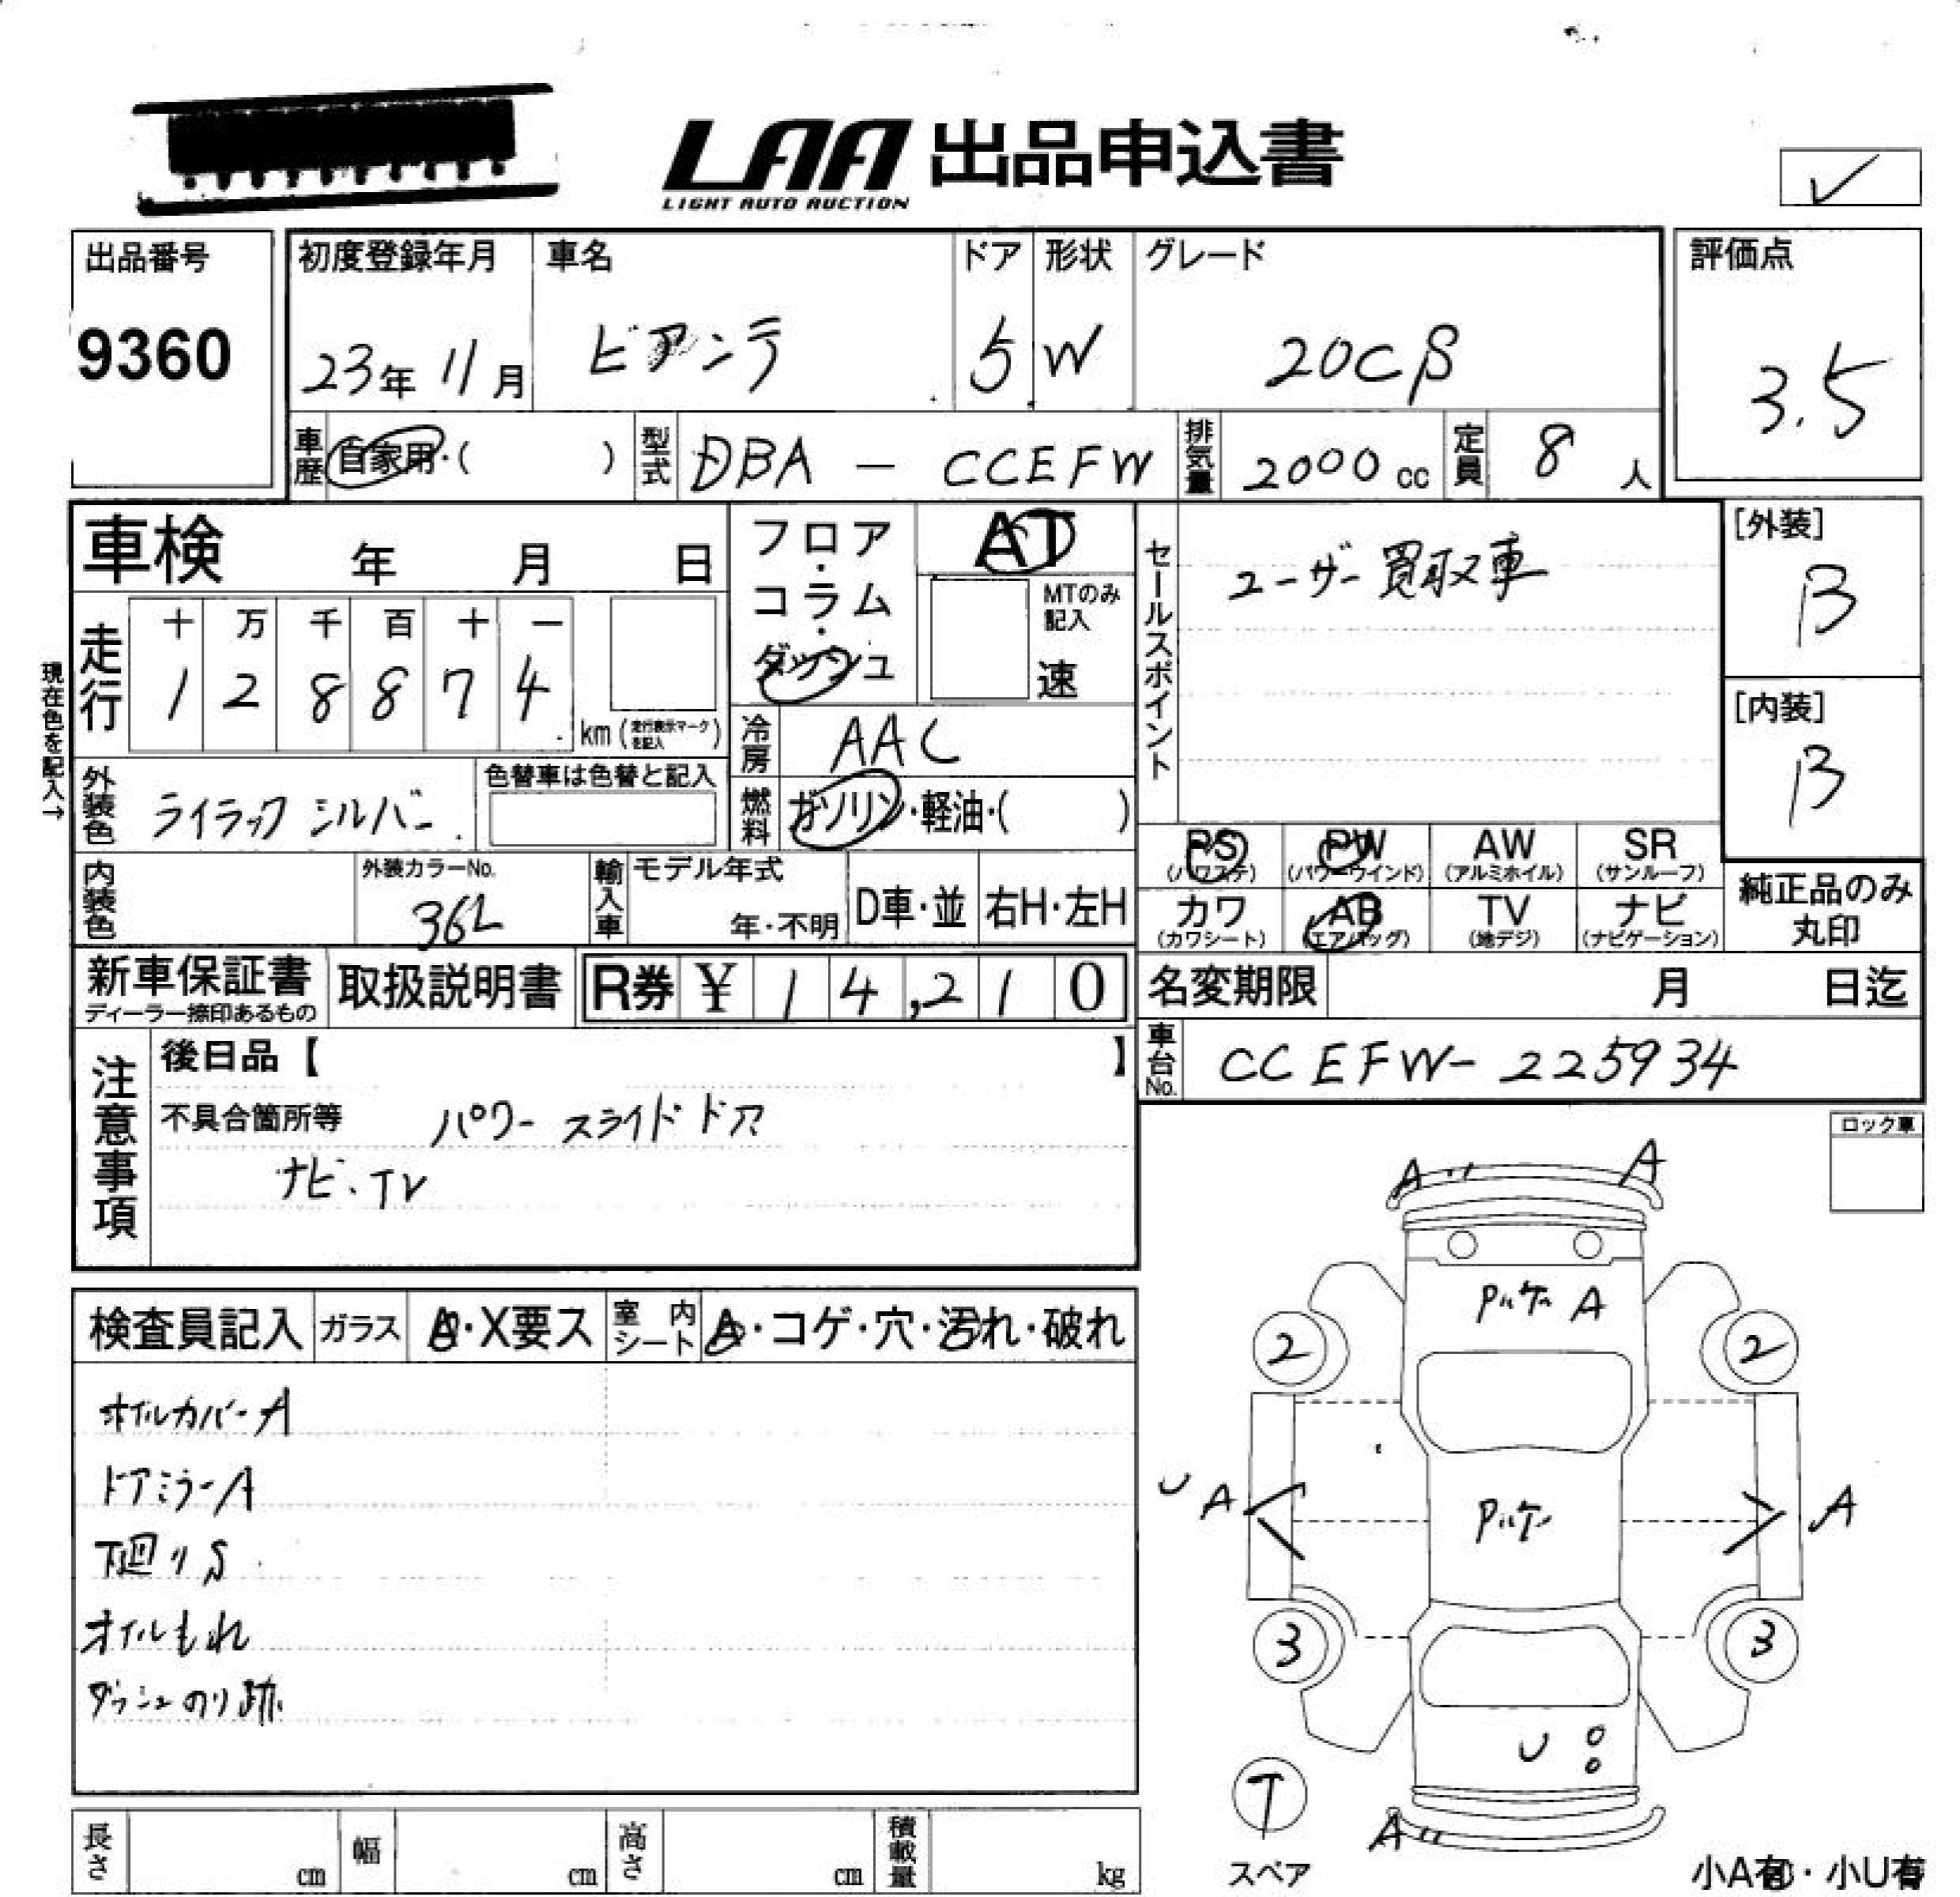 LAA 出品申込書
LIGHT AUTO AUCTION
出品番号 初度登録年月 車名 ドア 形状 グレード 評価点
9360 23年 11月 ビアンテ 5 W 20Cβ 3.5
車歴 自家用・( ) 型式 DBA - CCEFW 排気量 2000 cc 定員 8 人
車検 年 月 日 フロア・コラム・ダッシュ AT セールスポイント ユーザー買取車 [外装] B
MTのみ記入 速
走行 十 万 千 百 十 一
1 2 8 8 7 4 km (走行表示マークを記入)
現在色を記入→
冷房 AAC [内装] B
外装色 ライラックシルバー 色替車は色替と記入 燃料 ガソリン・軽油・( )
PS (パワステ) PW (パワーウインド) AW (アルミホイル) SR (サンルーフ)
内装色 外装カラーNo. 36L 輸入車 モデル年式 年・不明 D車・並 右H・左H
カワ (カワシート) AB (エアバッグ) TV (地デジ) ナビ (ナビゲーション) 純正品のみ丸印
新車保証書 ディーラー捺印あるもの 取扱説明書 R券 ¥ 14,210 名変期限 月 日迄
車台No. CCEFW-225934
注意事項 後日品【 】
不具合箇所等 パワースライドドア
ナビ・TV
ロック車
A" A
検査員記入 ガラス A・X要ス 室内シート A・コゲ・穴・汚れ・破れ
ホイルカバーA
ドアミラーA
下廻りS
オイルもれ
ダッシュのり跡
A
2 2
U A A
3 3
U
T
スペア
A"
長さ cm 幅 cm 高さ cm 積載量 kg
小A有・小U有